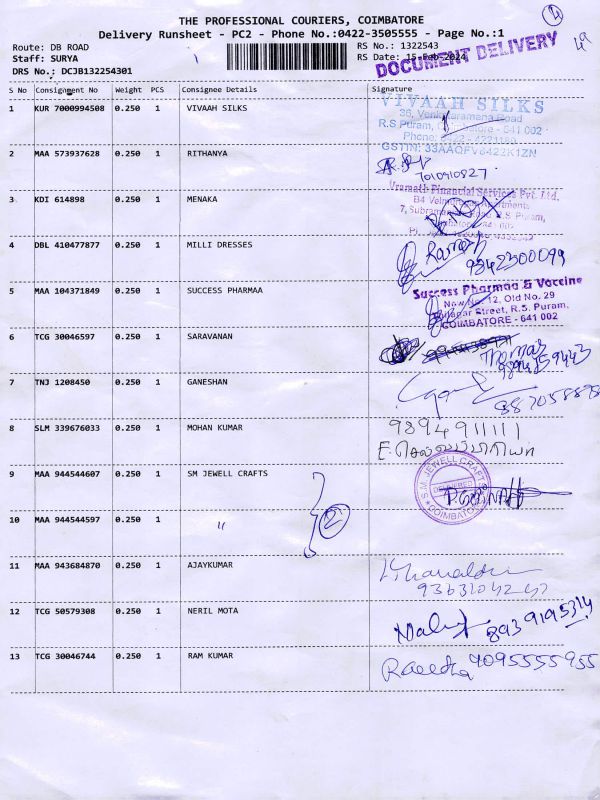 THE PROFESSIONAL COURIERS, COIMBATORE
Delivery Runsheet - PC2 - Phone No.:0422-3505555 - Page No.:1
4
49
Route: DB ROAD
Staff: SURYA
DRS No.: DCJB132254301
RS No.: 1322543
RS Date: 15-Feb-2024
DOCUMENT DELIVERY
S No Consignment No Weight PCS Consignee Details Signature
1 KUR 7000994508 0.250 1 VIVAAH SILKS
VIVAAH SILKS
36, Venkataramana Road
R.S.Puram, Coimbatore - 641 002
Phone:
GSTIN: 33AAQFV6422K1ZN
2 MAA 573937628 0.250 1 RITHANYA
7010910827
3 KDI 614898 0.250 1 MENAKA
Financial Services Pvt. Ltd.
4 DBL 410477877 0.250 1 MILLI DRESSES
Ramesh
9842300099
5 MAA 104371849 0.250 1 SUCCESS PHARMAA
Success Pharmaa & Vaccine
New No. 12, Old No. 29
Street, R.S. Puram,
COIMBATORE - 641 002
6 TCG 30046597 0.250 1 SARAVANAN
Thomas
7 TNJ 1208450 0.250 1 GANESHAN
8 SLM 339676033 0.250 1 MOHAN KUMAR
9894911111
9 MAA 944544607 0.250 1 SM JEWELL CRAFTS
S.M. JEWELL CRAFTS
DELIVERED
COIMBATORE
10 MAA 944544597 0.250 1 "
2
11 MAA 943684870 0.250 1 AJAYKUMAR
12 TCG 50579308 0.250 1 NERIL MOTA
8939195314
13 TCG 30046744 0.250 1 RAM KUMAR
9095555955